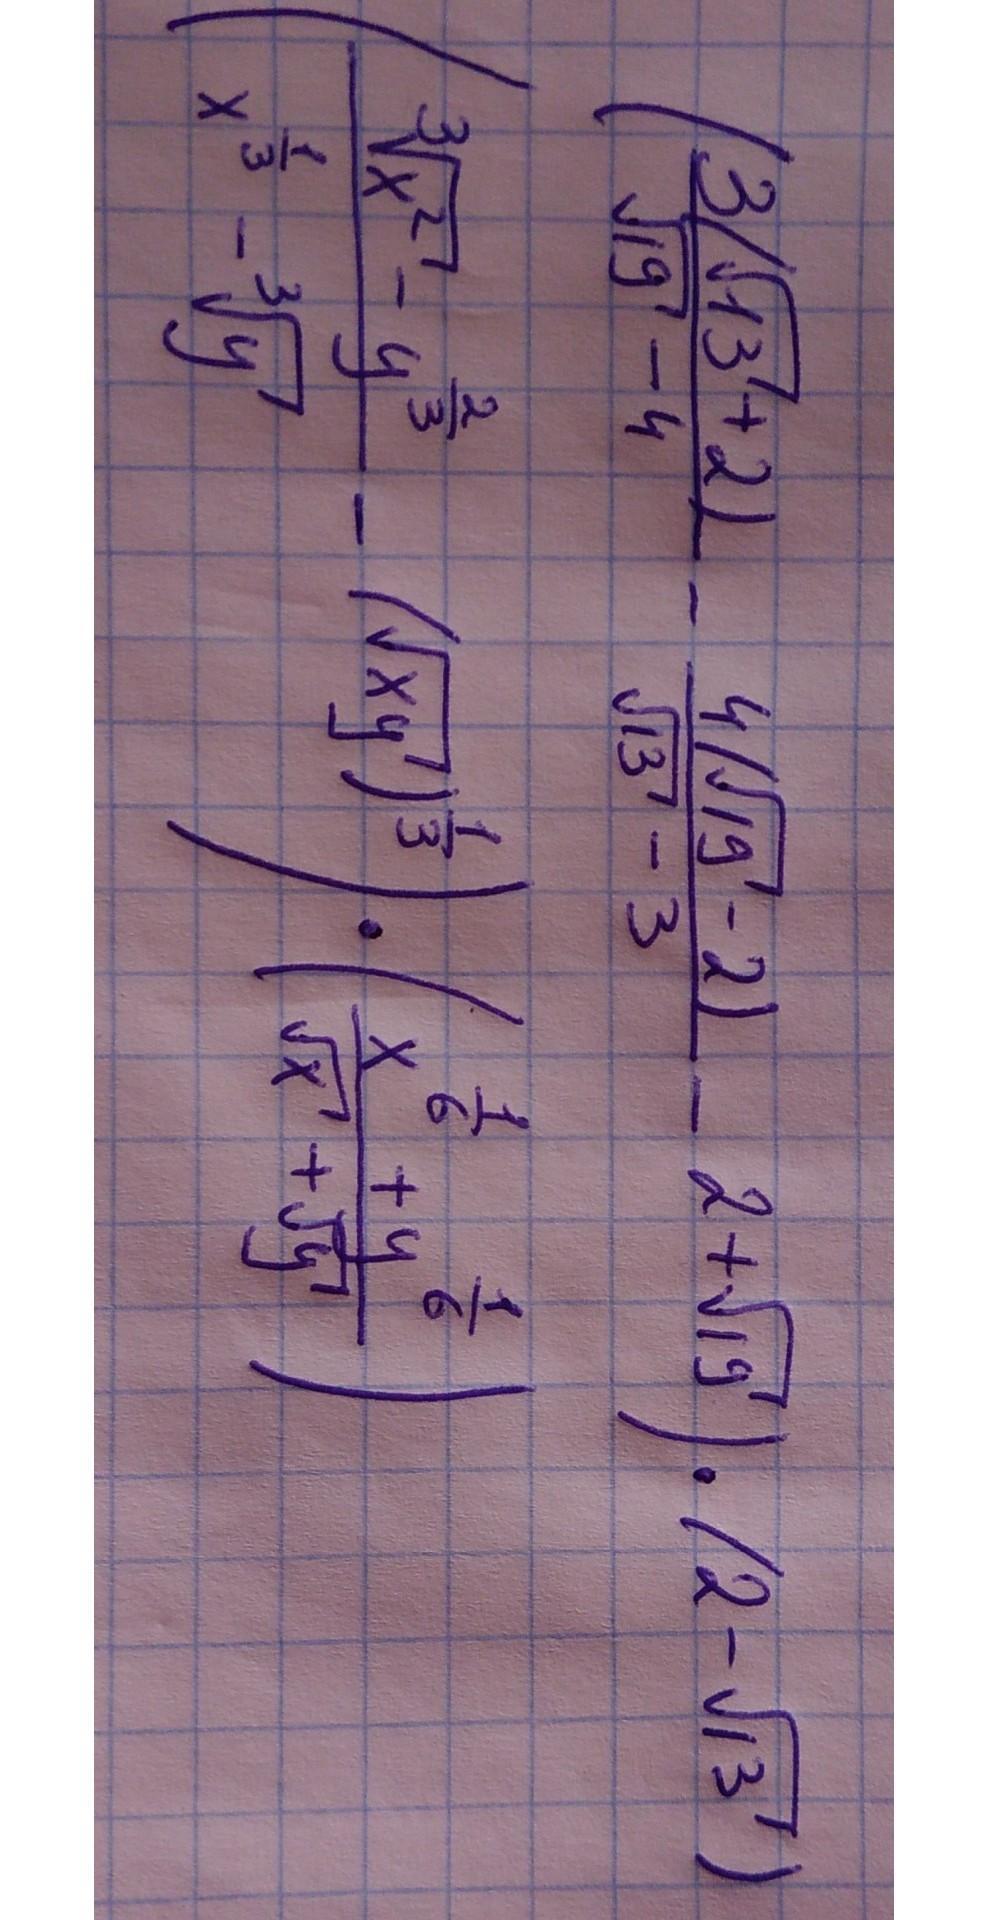 (3(√13+2)/(√19-4) - 4(√19-2)/(√13-3) - 2+√19)·(2-√13)
((∛x² - y^(2/3))/(x^(1/3) - ∛y) - (√xy)^(1/3))·((x^(1/6) + y^(1/6))/(√x + √y))